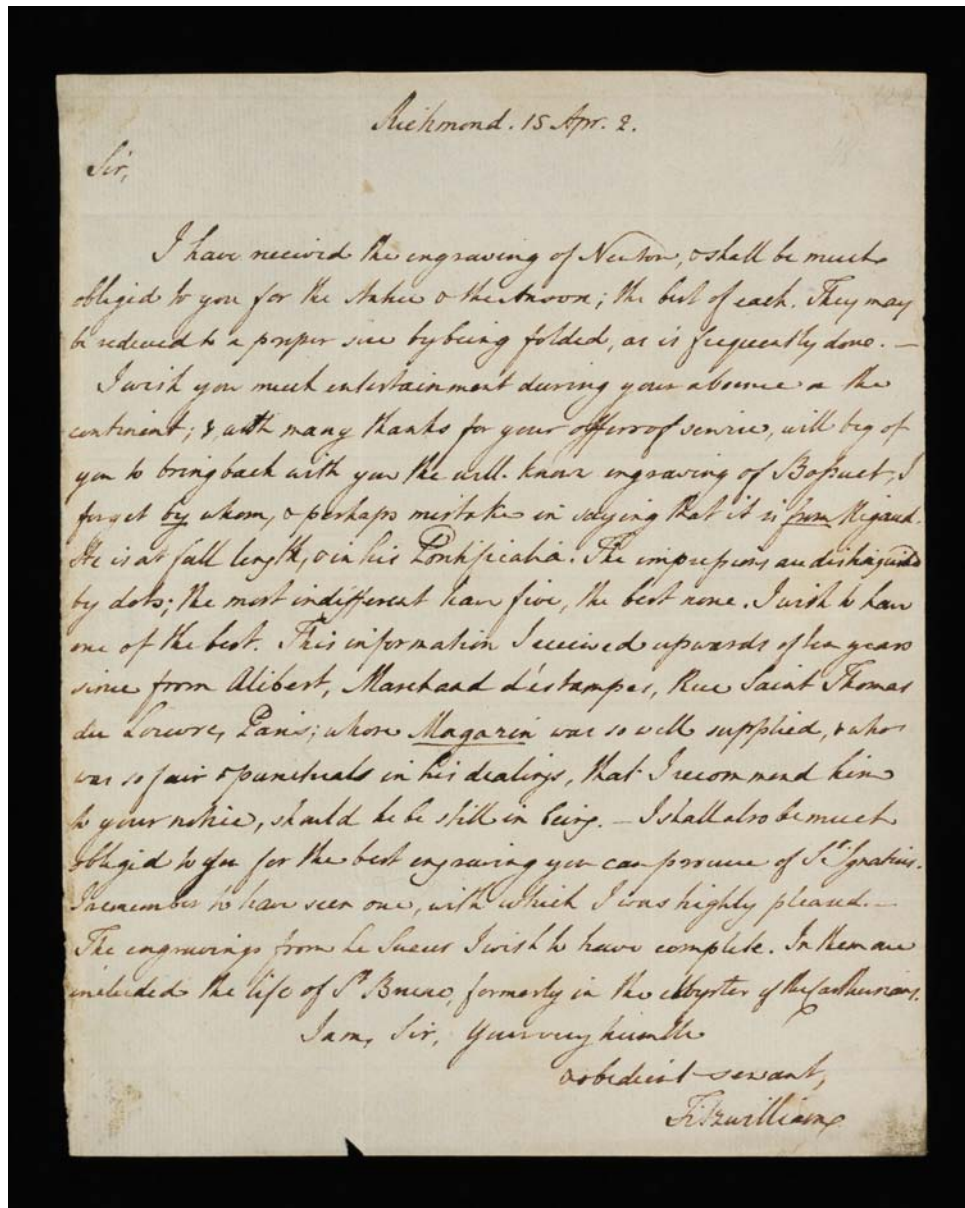 Richmond. 15 Apr. 2.
Sir,
I have received the engraving of Newton, & shall be much
obliged to you for the & the Anson; the best of each. They may
be reduced to a proper size by being folded, as is frequently done. —
I wish you much entertainment during your absence on the
continent; &, with many thanks for your offer of service, will beg of
you to bring back with you the well-known engraving of Bossuet, I
forget by whom, & perhaps mistake in saying that it is from Rigaud.
He is at full length, & in his Pontificalia. The impressions are distinguished
by dots; the most indifferent have five, the best none. I wish to have
one of the best. This information I received upwards of ten years
since from Alibert, Marchand d'estampes, Rue Saint Thomas
du Louvre, Paris; whose Magazin was so well supplied, & who
was so fair & punctual in his dealings, that I recommend him
to your notice, should he be still in being. — I shall also be much
obliged to you for the best engraving you can procure of St. Ignatius.
I remember to have seen one, with which I was highly pleased. —
The engravings from Le Sueur I wish to have complete. In them are
included the life of St Bruno, formerly in the of the Carthusians.
I am, Sir, your very humble
& obedient servant,
Fitzwilliam